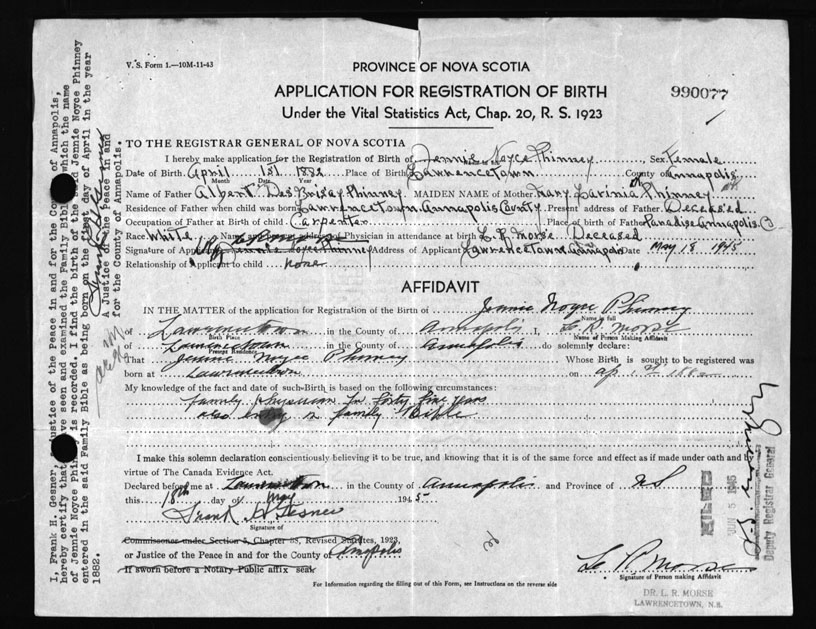 V. S. Form 1.—10M-11-43
PROVINCE OF NOVA SCOTIA
APPLICATION FOR REGISTRATION OF BIRTH
990077
Under the Vital Statistics Act, Chap. 20, R. S. 1923
TO THE REGISTRAR GENERAL OF NOVA SCOTIA
I hereby make application for the Registration of Birth of Jennie Noyce Phinney Sex Female
Date of Birth April 1st 1882 Place of Birth Lawrencetown County of Annapolis
Month Date Year
Name of Father Albert Des Brisay Phinney MAIDEN NAME of Mother Mary Lavinia Phinney
Residence of Father when child was born Lawrencetown Annapolis County Present address of Father Deceased
Occupation of Father at Birth of child Carpenter Place of birth of Father Paradise Annapolis Co
Race White Physician in attendance at birth L. R. Morse Deceased
Signature of Applicant Jennie Noyce Phinney Address of Applicant Lawrencetown Annapolis Date May 18 1945
Relationship of Applicant to child none
AFFIDAVIT
IN THE MATTER of the application for Registration of the Birth of Jennie Noyce Phinney
Name in full
of Lawrencetown in the County of Annapolis I, L. R. Morse
Birth Place Name of Person Making Affidavit
of Lawrencetown in the County of Annapolis do solemnly declare:
Present Residence
That Jennie Noyce Phinney Whose Birth is sought to be registered was
born at Lawrencetown on Ap 1st 1882
My knowledge of the fact and date of such Birth is based on the following circumstances:
family physician for forty five years
also entry in family Bible
I make this solemn declaration conscientiously believing it to be true, and knowing that it is of the same force and effect as if made under oath and by
virtue of The Canada Evidence Act.
Declared before me at Lawrencetown in the County of Annapolis and Province of NS
this 18th day of May 1945
Frank H Gesner
Signature of
Commissioner under Section 2, Chapter 38, Revised Statutes, 1923,
or Justice of the Peace in and for the County of Annapolis
If sworn before a Notary Public affix seal
L R Morse
Signature of Person making Affidavit
For Information regarding the filling out of this Form, see Instructions on the reverse side
DR. L. R. MORSE
LAWRENCETOWN, N.S.
I, Frank H. Gesner, Justice of the Peace in and for the County of Annapolis,
hereby certify that I have seen and examined the Family Bible in which the name
of Jennie Noyce Phinney is recorded. I find the birth of the said Jennie Noyce Phinney
entered in the said Family Bible as being born on the first day of April in the year
1882.
Frank H Gesner
A Justice of the Peace in and
for the County of Annapolis.
JUN 5 1945
Deputy Registrar General